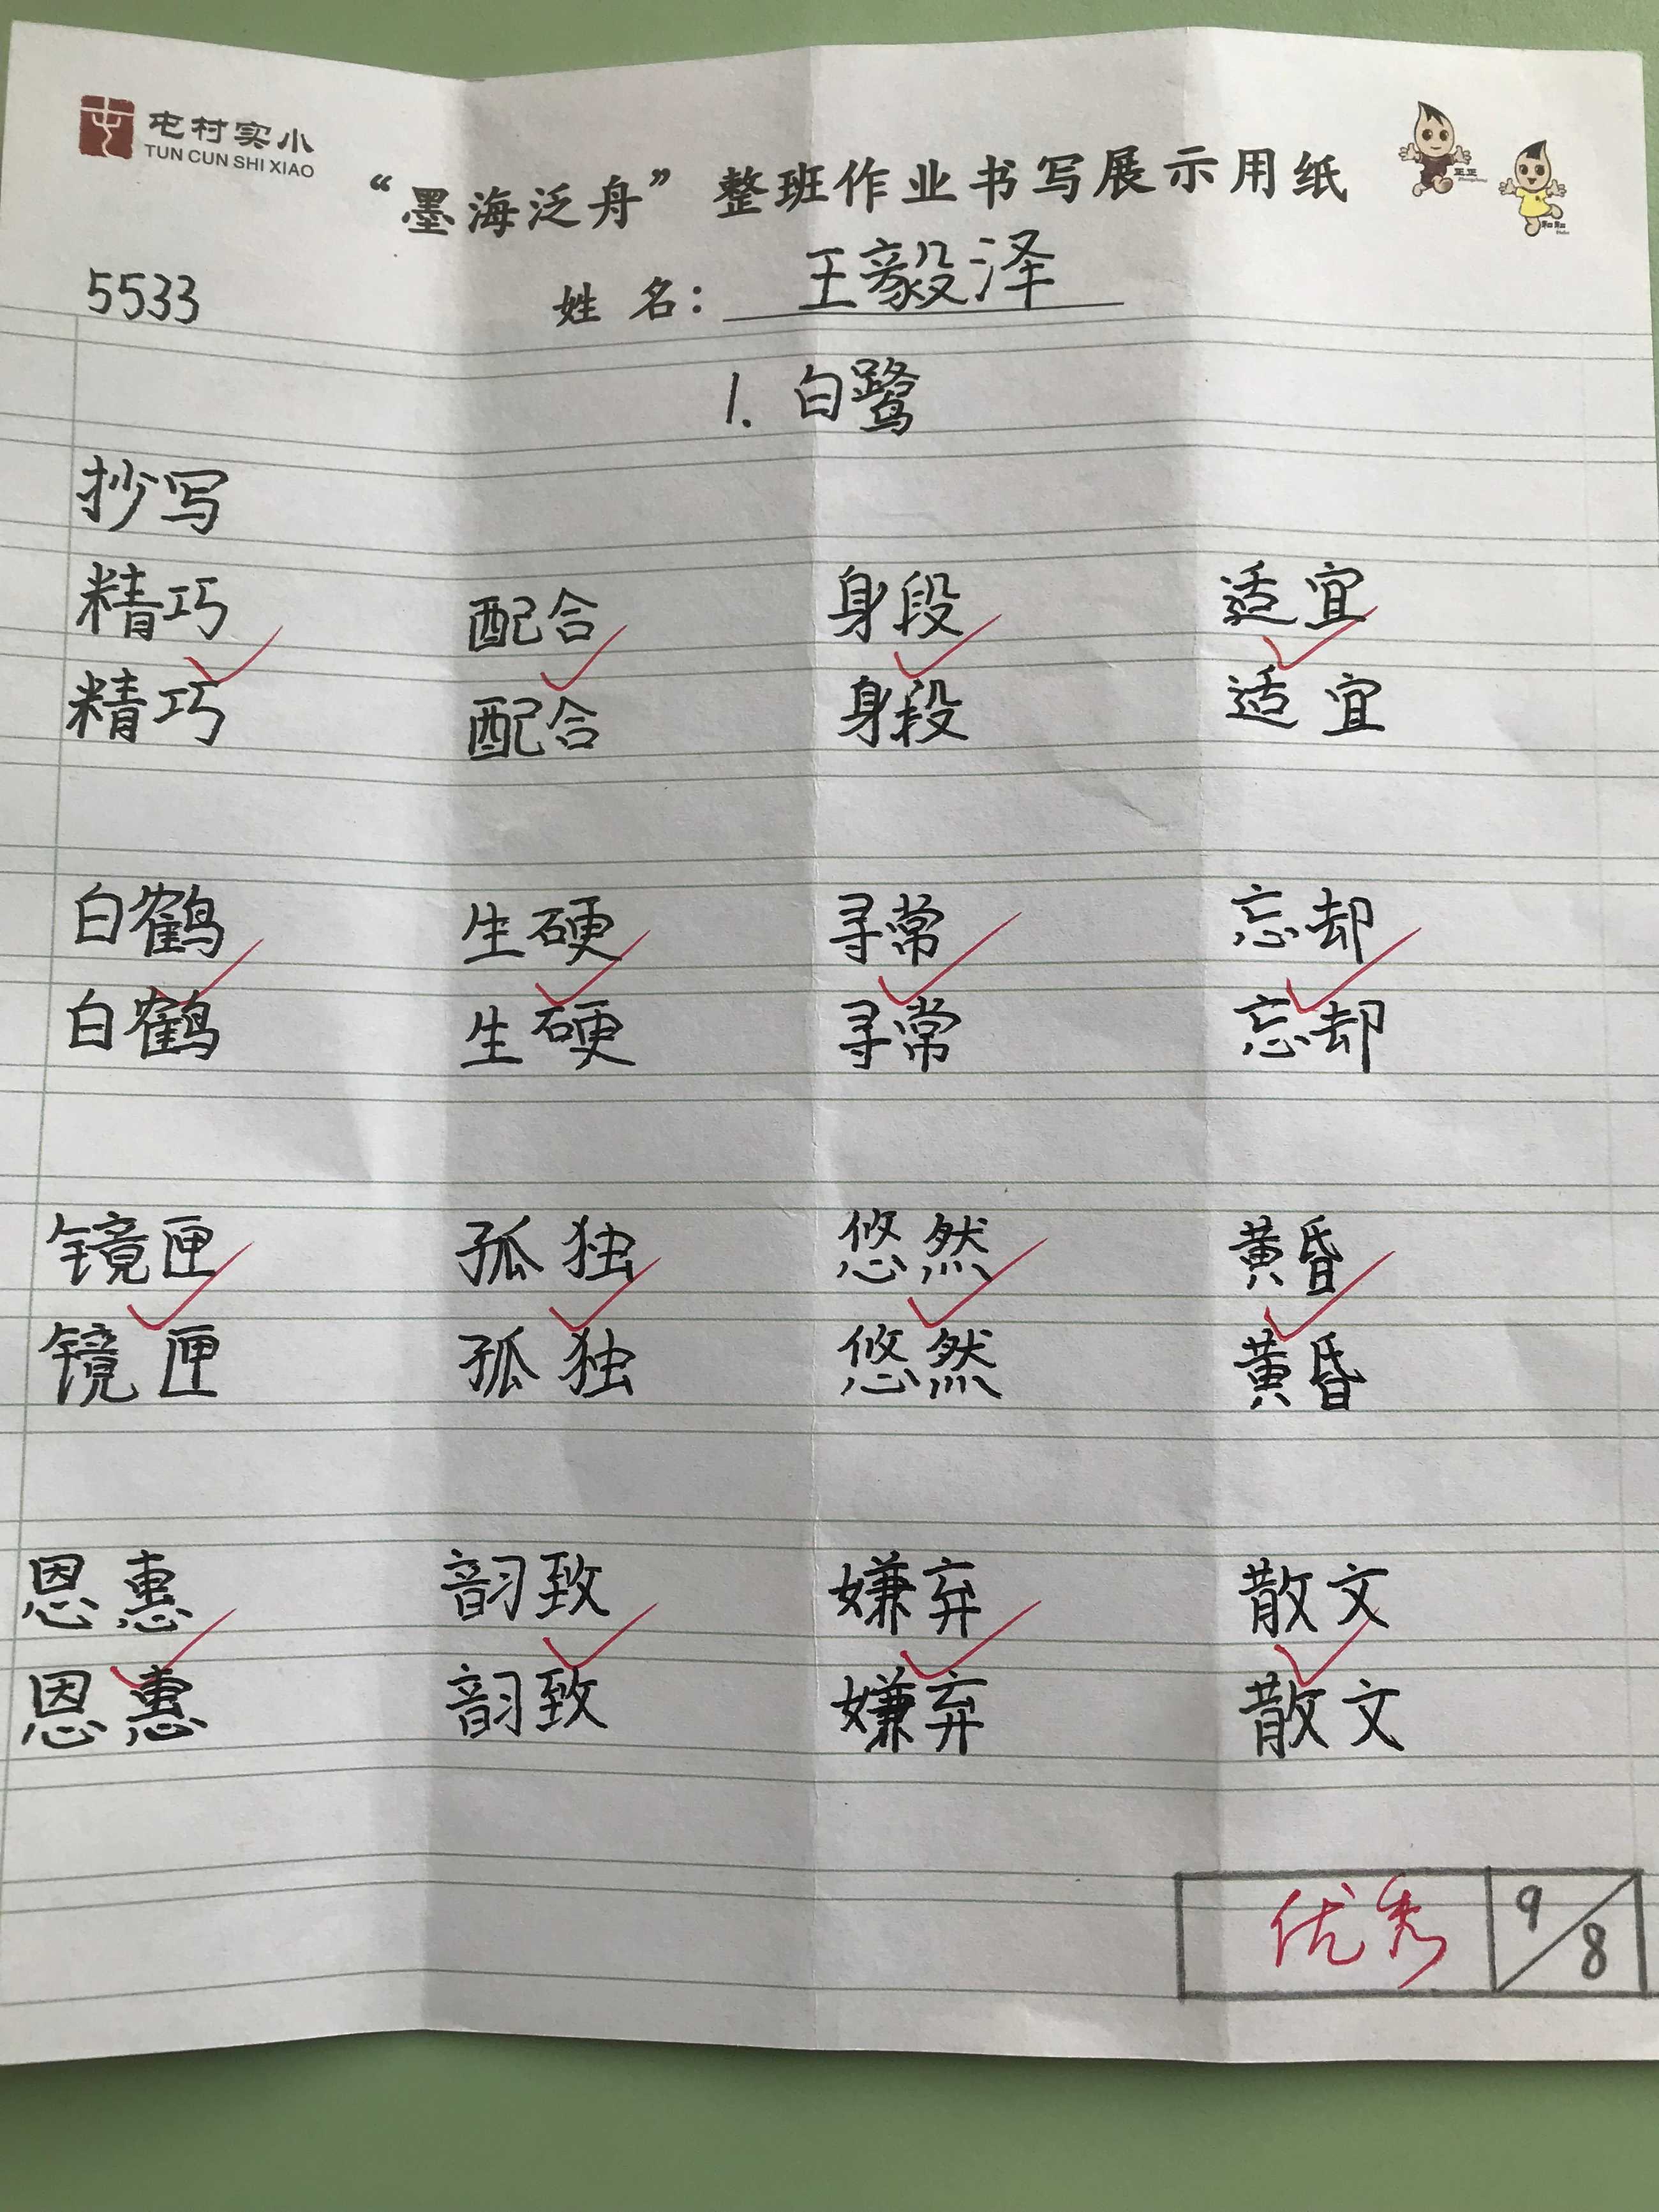 屯村实小
TUN CUN SHI XIAO
“墨海泛舟”整班作业书写展示用纸
5533 姓名：王毅泽
1. 白鹭
抄写
精巧 配合 身段 适宜
精巧 配合 身段 适宜
白鹤 生硬 寻常 忘却
白鹤 生硬 寻常 忘却
镜匣 孤独 悠然 黄昏
镜匣 孤独 悠然 黄昏
恩惠 韵致 嫌弃 散文
恩惠 韵致 嫌弃 散文
优秀 9/8